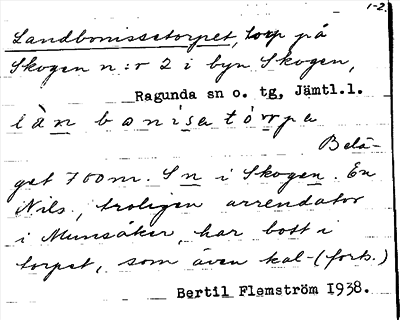 1-2.
Landbonissetorpet, torp på
Skogen n:r 2 i byn Skogen,
Ragunda sn o. tg, Jämtl.l.
làn bonisatórpa
Belä-
get 700m. S n i Skogen. En
Nils, troligen arrendator
i Munsåker, har bott i
torpet, som även kal-(forts.)
Bertil Flemström 1938.